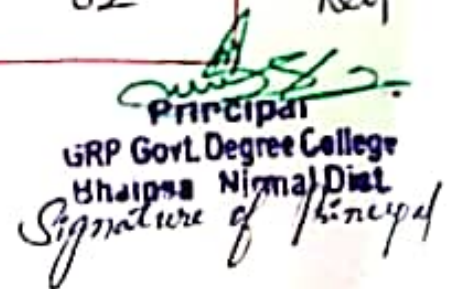 Principal
GRP Govt. Degree College
Bhaipsa Nirmal Dist.
Signature of Principal